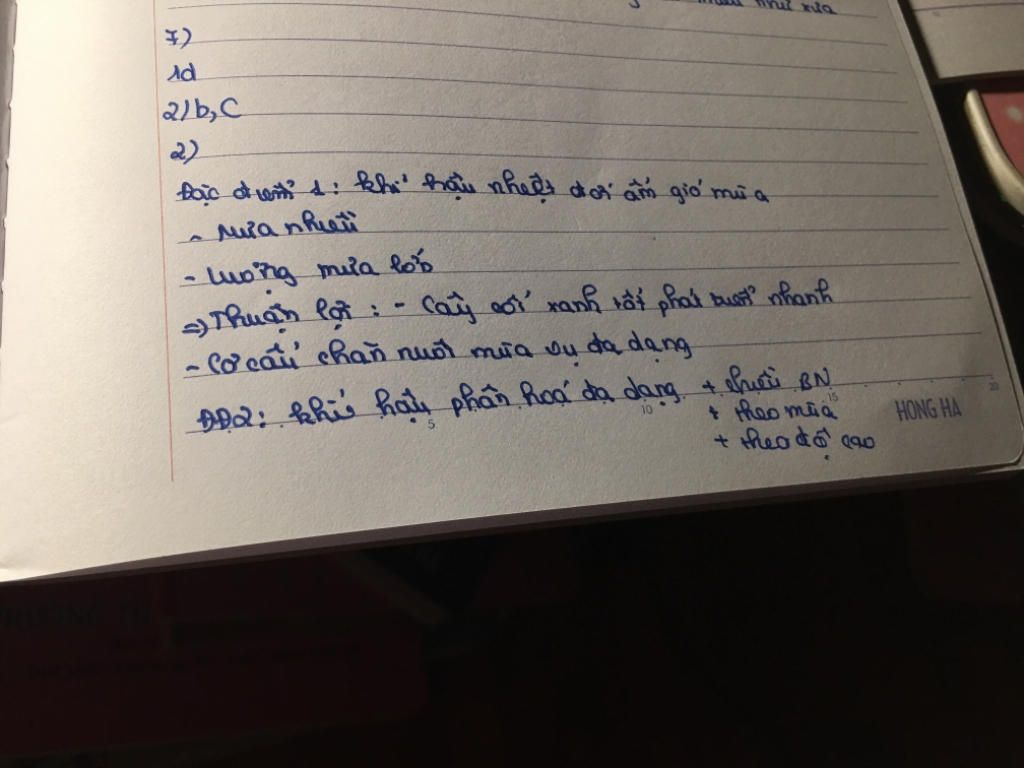 như xưa
7)
1d
2) b, C
2)
Đặc điểm 1: khí hậu nhiệt đới ẩm gió mùa
- Mưa nhiều
- Lượng mưa lớn
=> Thuận lợi: - Cây cối xanh tốt phát triển nhanh
- Cơ cấu chăn nuôi mùa vụ đa dạng
ĐĐ2: khí hậu phân hoá đa dạng + chiều BN
+ theo mùa
+ theo độ cao
5 10 15 20
HONG HA